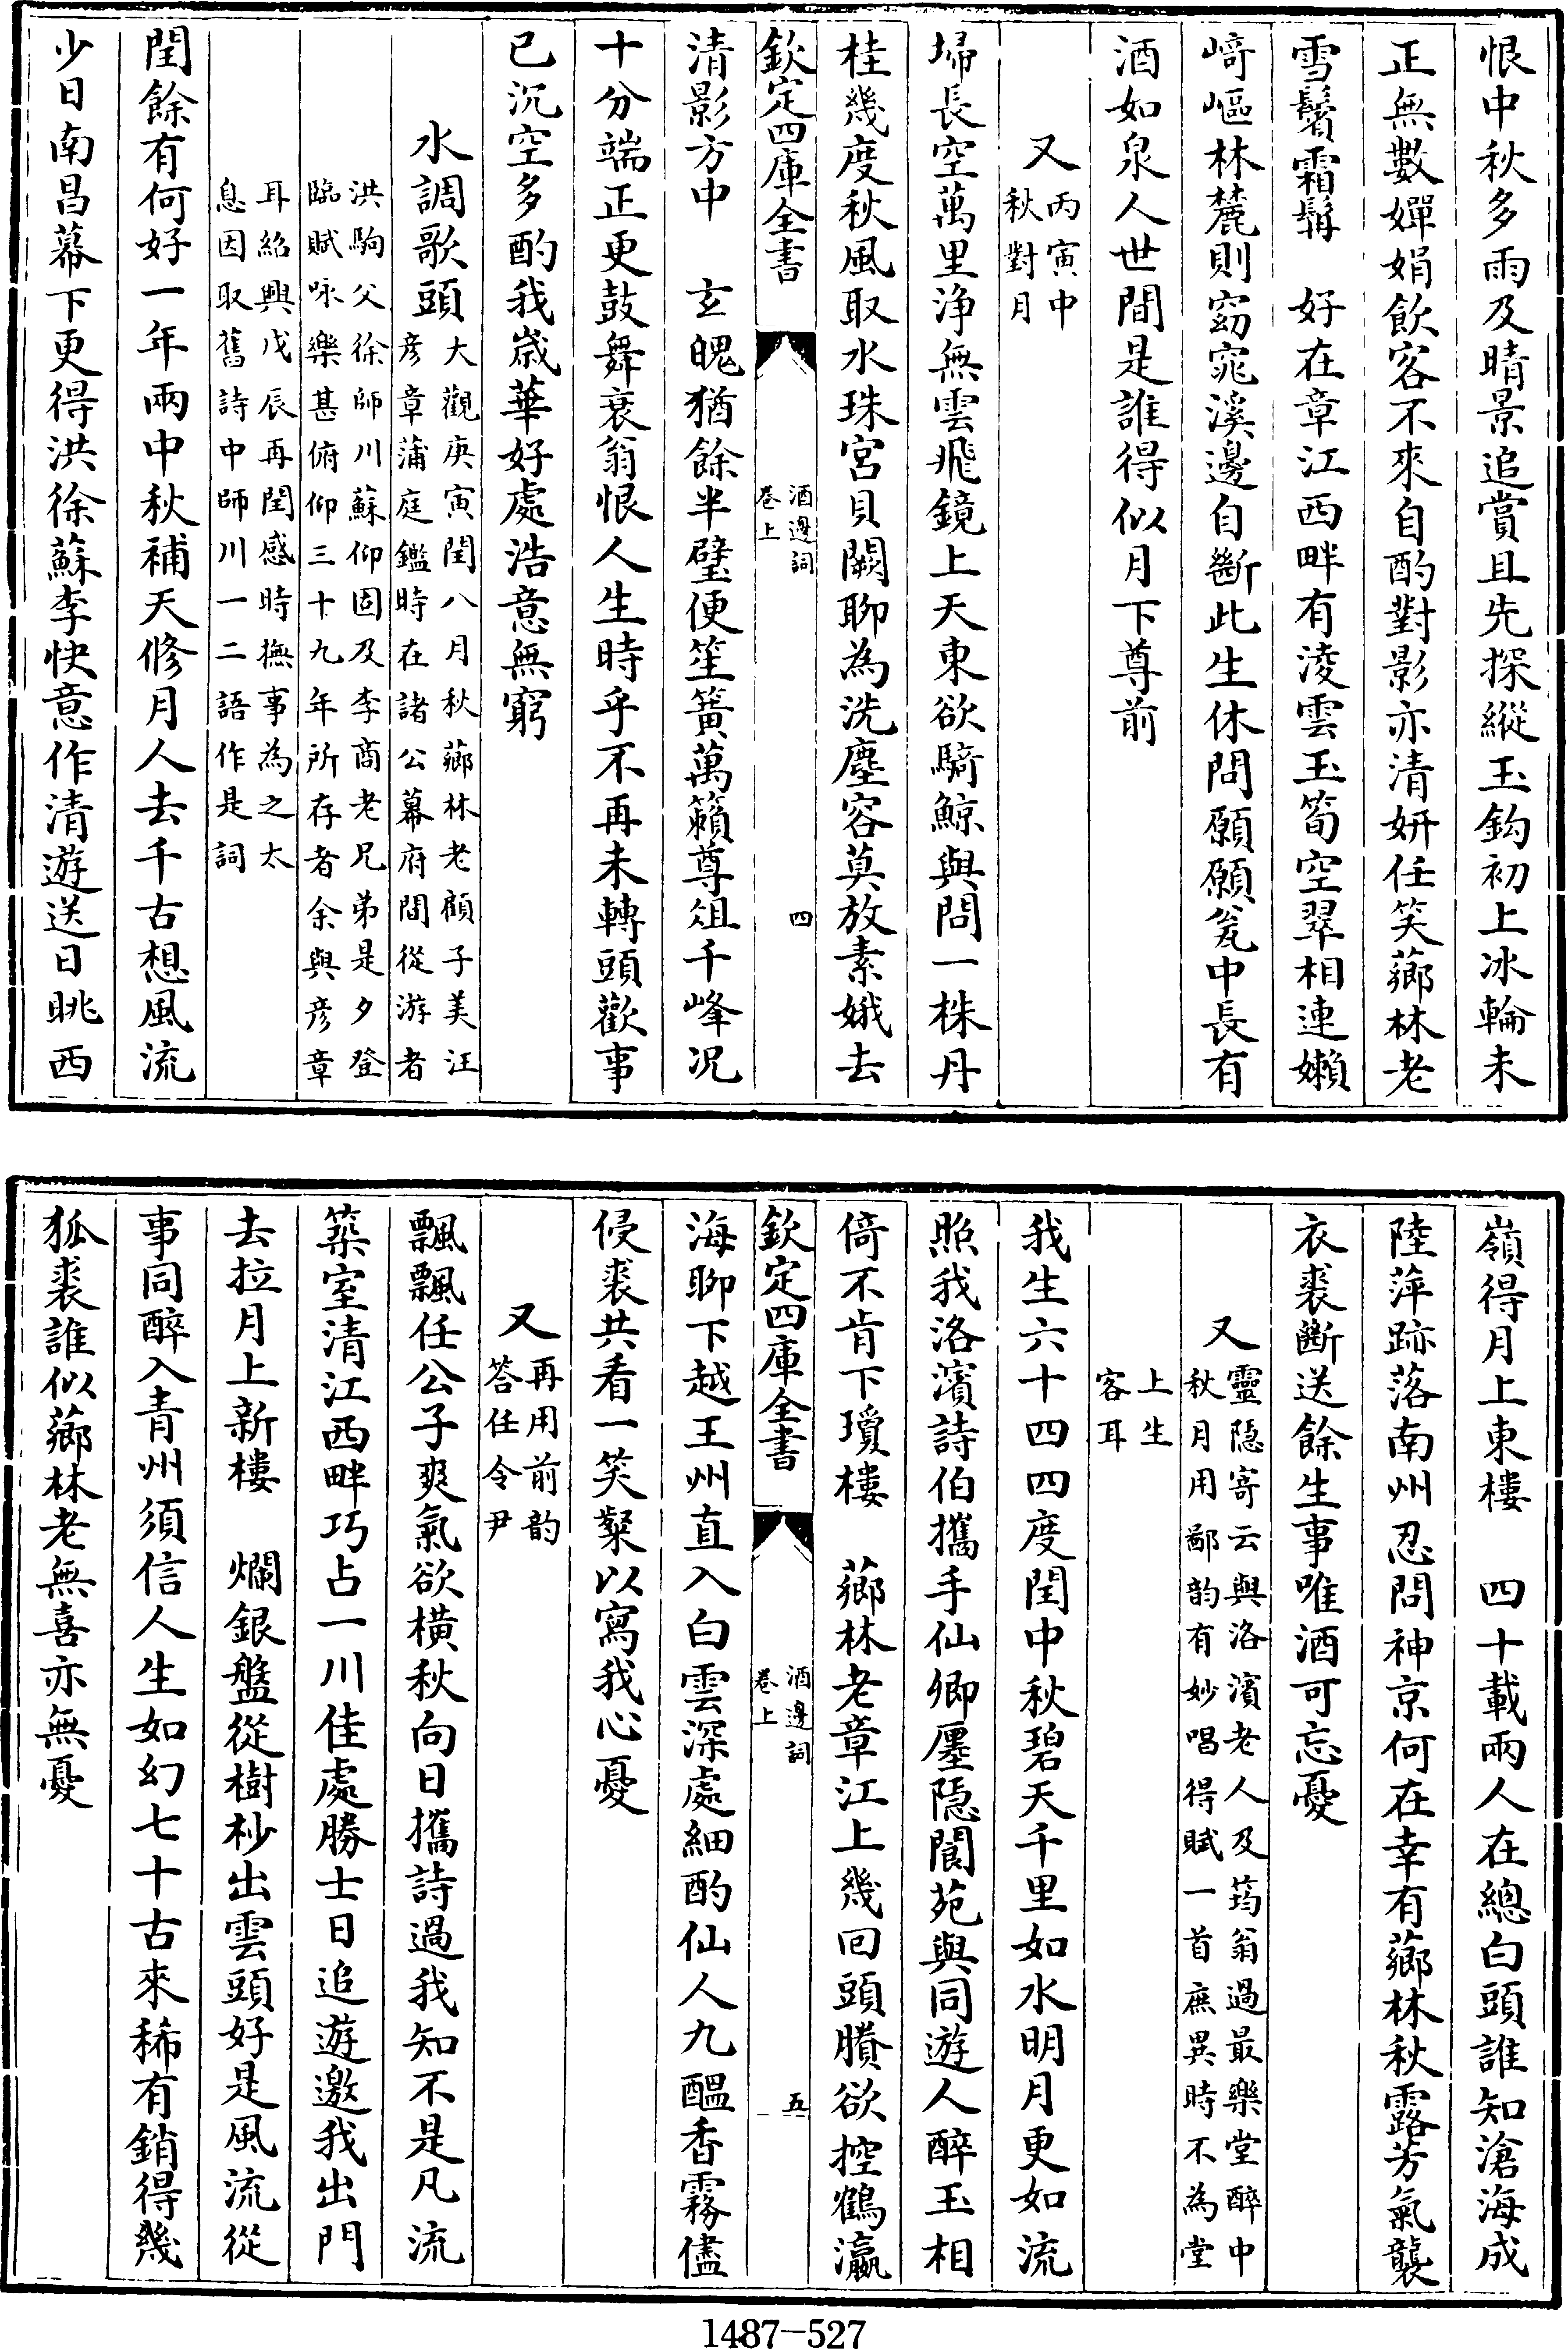 恨中秋多雨及晴景追賞且先探縱玉鈎初上冰輪未
正無數嬋娟飲客不來自酌對影亦清妍任笑薌林老
雪鬢霜髯　好在章江西畔有淩雲玉筍空翠相連嬾
崎嶇林麓則窈窕溪邊自斷此生休問願願瓮中長有
酒如泉人世間是誰得似月下尊前
又丙寅中
秋對月
埽長空萬里浄無雲飛鏡上天東欲騎鯨與問一株丹
桂幾度秋風取水珠宮貝闕聊為洗塵容莫放素娥去
欽定四庫全書
酒邊詞
卷上
四
清影方中　玄魄猶餘半璧便笙簧萬籟尊俎千峰况
十分端正更鼓舞衰翁恨人生時乎不再未轉頭歡事
已沉空多酌我嵗華好處浩意無窮
水調歌頭大觀庚寅閏八月秋薌林老顧子美汪
彦章蒲庭鑑時在諸公幕府間從游者
洪駒父徐師川蘇仰固及李商老兄弟是夕登
臨賦咏樂甚俯仰三十九年所存者余與彦章
耳紹興戊辰再閏感時撫事為之太
息因取舊詩中師川一二語作是詞
閏餘有何好一年兩中秋補天修月人去千古想風流
少日南昌幕下更得洪徐蘇李快意作清遊送日眺西
嶺得月上東樓　四十載兩人在總白頭誰知滄海成
陸萍跡落南州忍問神京何在幸有薌林秋露芳氣襲
衣裘斷送餘生事唯酒可忘憂
又靈隠寄云與洛濱老人及筠翁過最樂堂醉中
秋月用鄙韵有妙唱得賦一首庶異時不為堂
上生
客耳
我生六十四四度閏中秋碧天千里如水明月更如流
照我洛濱詩伯攜手仙卿廛隠閬苑與同遊人醉玉相
倚不肯下瓊樓　薌林老章江上幾回頭賸欲控鶴瀛
欽定四庫全書
酒邊詞
卷上
五
海聊下越王州直入白雲深處細酌仙人九醖香霧儘
侵裘共看一笑粲以寫我心憂
又再用前韵
答任令尹
飄飄任公子爽氣欲橫秋向日攜詩過我知不是凡流
築室清江西畔巧占一川佳處勝士日追遊邀我出門
去拉月上新樓　爛銀盤從樹杪出雲頭好是風流從
事同醉入青州須信人生如幻七十古來稀有銷得幾
狐裘誰似薌林老無喜亦無憂
1487-527